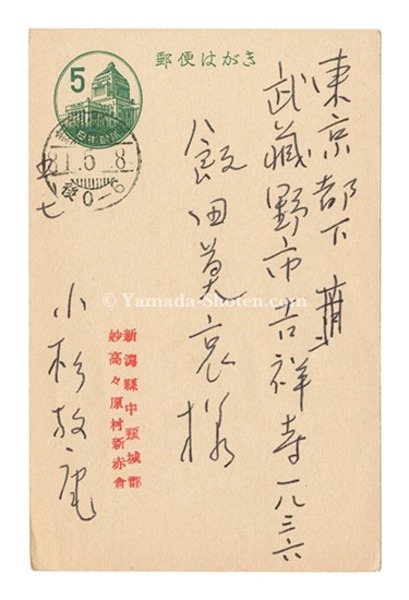 郵便はがき
東京都下
武蔵野市吉祥寺一八三六
飯田莫哀様
5
31.5.8
五
七
新潟縣中頸城郡
妙高々原村新赤倉
小杉放庵
© Yamada-Shoten.com